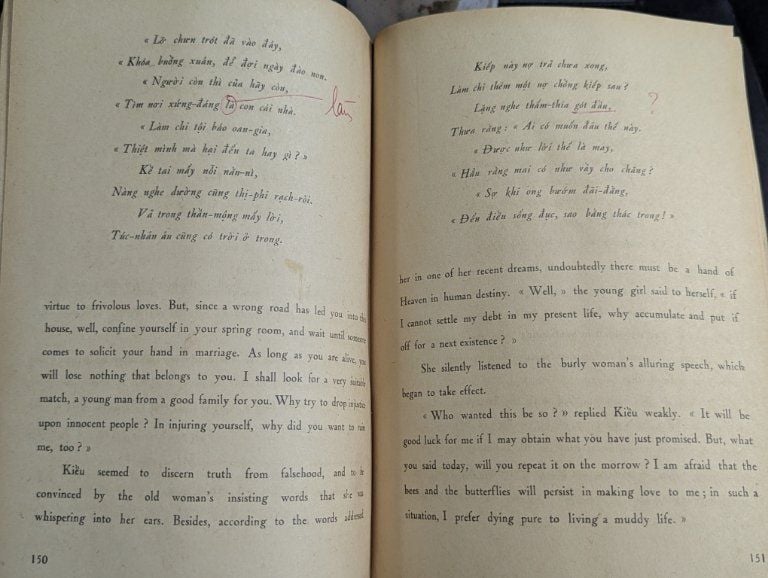 « Lỡ chưn trót đã vào đây,
« Khóa buồng xuân, để đợi ngày đào non.
« Người còn thì của hãy còn,
« Tìm nơi xứng-đáng là con cái nhà.
làm
« Làm chi tội báo oan-gia,
« Thiệt mình mà hại đến ta hay gì ? »
Kề tai mấy nỗi nằn-nì,
Nàng nghe dường cũng thị-phi rạch-ròi.
Vả trong thần-mộng mấy lời,
Túc-nhân âu cũng có trời ở trong.
virtue to frivolous loves. But, since a wrong road has led you into this
house, well, confine yourself in your spring room, and wait until someone
comes to solicit your hand in marriage. As long as you are alive, you
will lose nothing that belongs to you. I shall look for a very suitable
match, a young man from a good family for you. Why try to drop injustice
upon innocent people ? In injuring yourself, why did you want to ruin
me, too ? »
Kiều seemed to discern truth from falsehood, and to be
convinced by the old woman's insisting words that she was
whispering into her ears. Besides, according to the words addressed
150
Kiếp này nợ trả chưa xong,
Làm chi thêm một nợ chồng kiếp sau ?
Lặng nghe thấm-thía gót đầu,
?
Thưa rằng : « Ai có muốn đâu thế này.
« Được như lời thế là may,
« Hẳn rằng mai có như vầy cho chăng ?
« Sợ khi ong bướm đãi-đằng,
« Đến điều sống đục, sao bằng thác trong ! »
her in one of her recent dreams, undoubtedly there must be a hand of
Heaven in human destiny. « Well, » the young girl said to herself, « if
I cannot settle my debt in my present life, why accumulate and put if
off for a next existence ? »
She silently listened to the burly woman's alluring speech, which
began to take effect.
« Who wanted this be so ? » replied Kiều weakly. « It will be
good luck for me if I may obtain what you have just promised. But, what
you said today, will you repeat it on the morrow ? I am afraid that the
bees and the butterflies will persist in making love to me ; in such a
situation, I prefer dying pure to living a muddy life. »
151